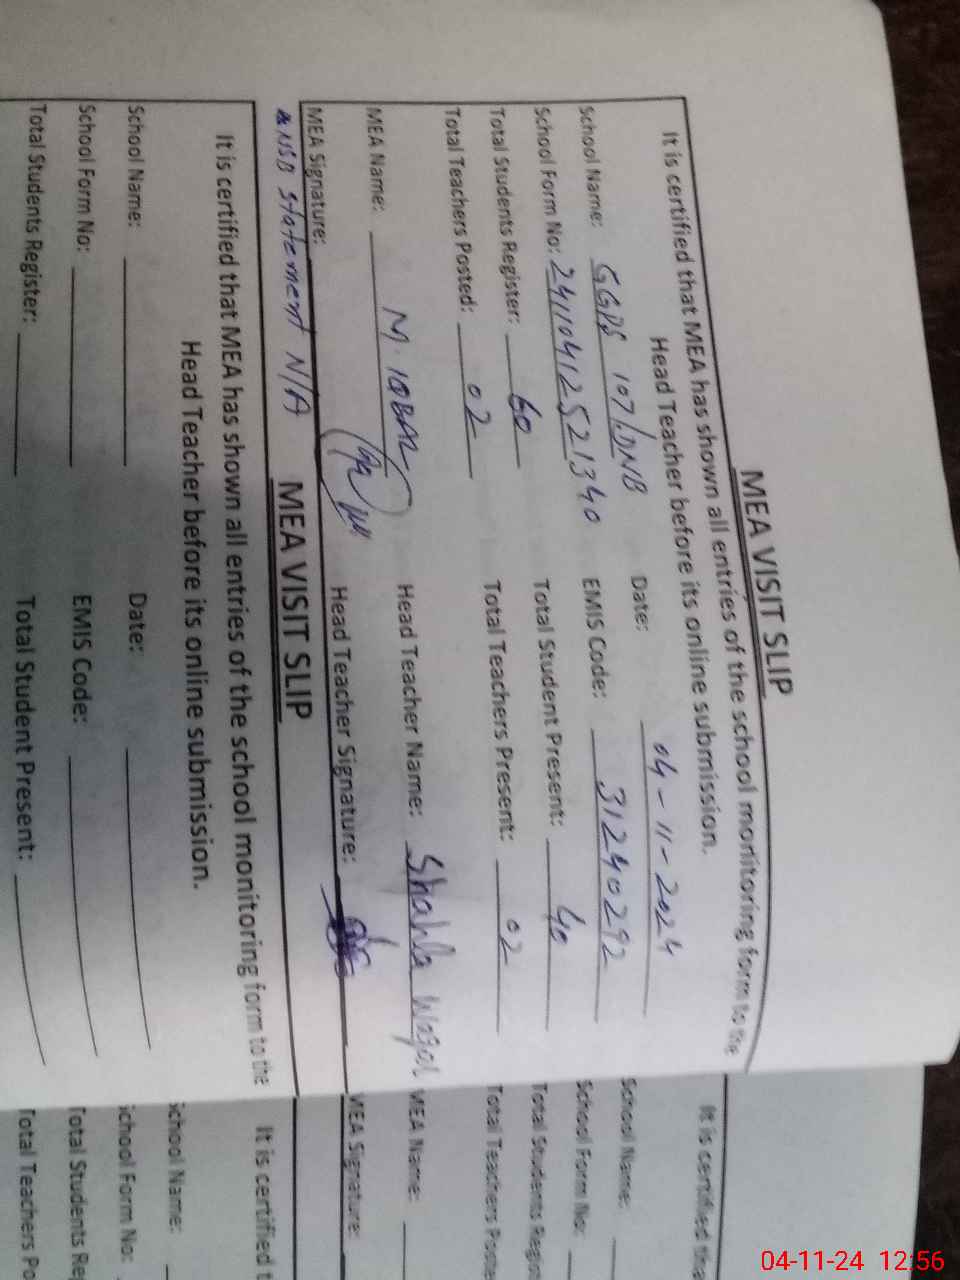 MEA VISIT SLIP
It is certified that MEA has shown all entries of the school monitoring form to the
Head Teacher before its online submission.
School Name: GGPS 107/DNB Date: 04-11-2024
School Form No: 2411041252 1340 EMIS Code: 31240292
Total Students Register: 60 Total Student Present: 40
Total Teachers Posted: 02 Total Teachers Present: 02
MEA Name: M. IQBAL Head Teacher Name: Shahla
MEA Signature: Head Teacher Signature:
NSB statement N/A
MEA VISIT SLIP
It is certified that MEA has shown all entries of the school monitoring form to the
Head Teacher before its online submission.
School Name: Date:
School Form No: EMIS Code:
Total Students Register: Total Student Present:
It is certified that
School Name:
School Form No:
Total Students Regis
Total Teachers Poste
MEA Name:
MEA Signature:
It is certified t
School Name:
School Form No:
Total Students Re
Total Teachers Po
04-11-24 12:56